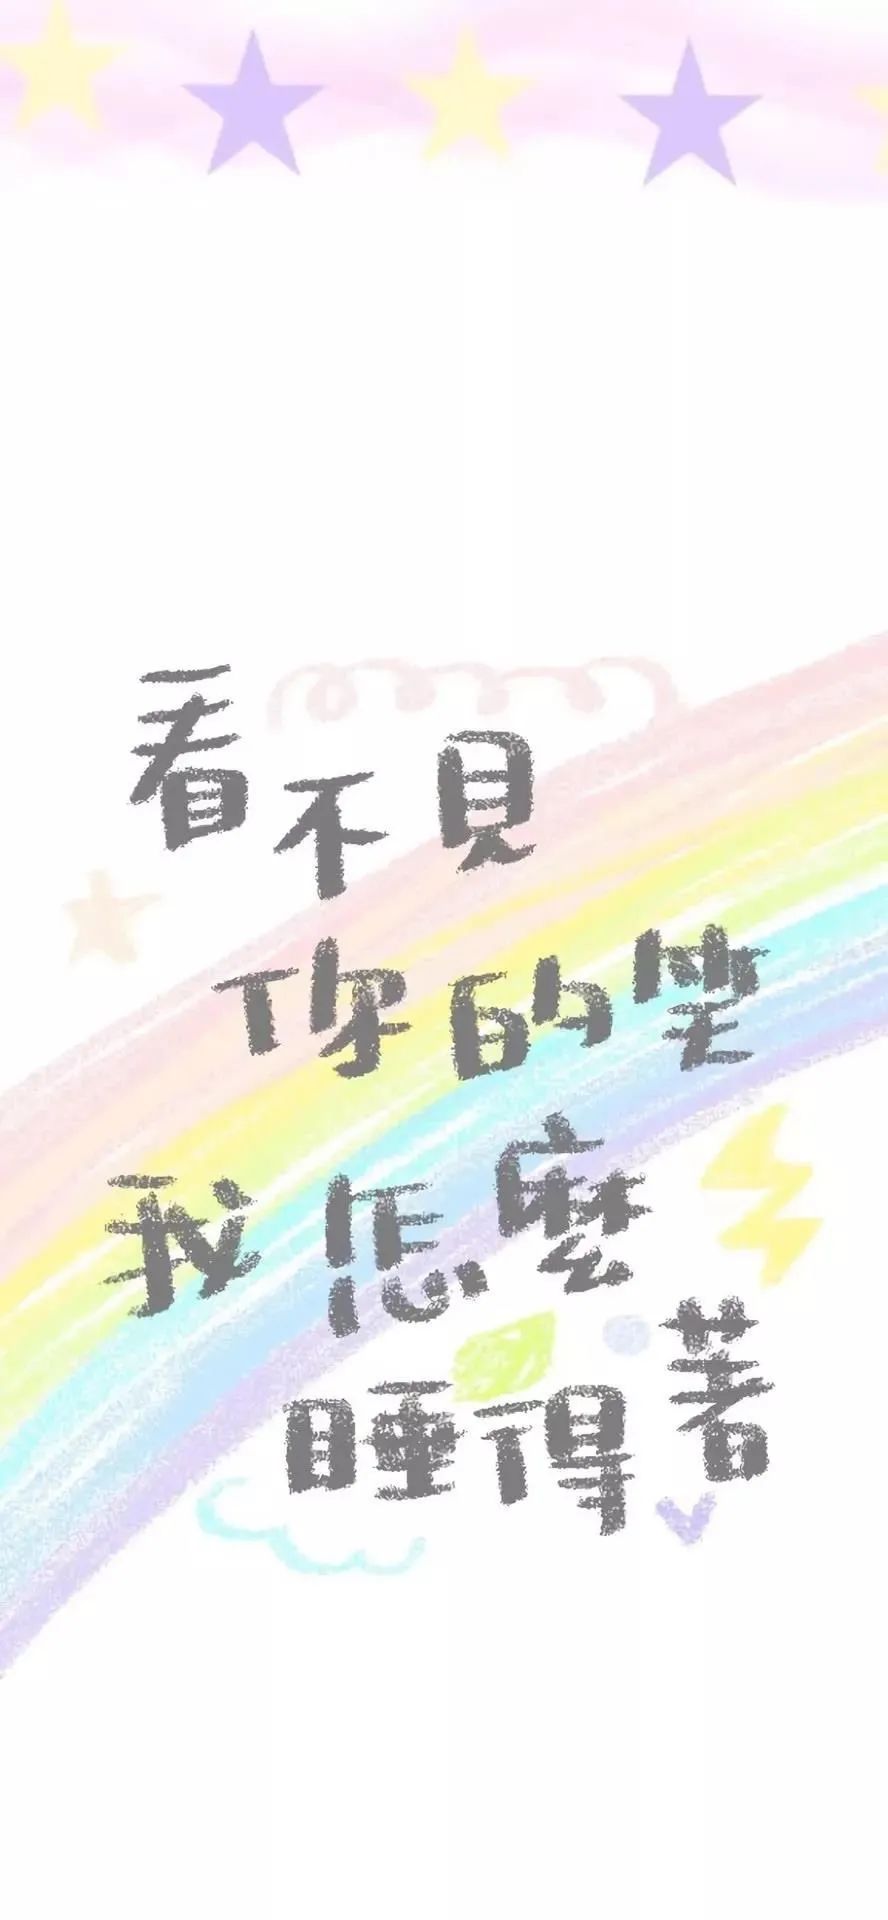 看不見
你的笑
我怎麼
睡得著